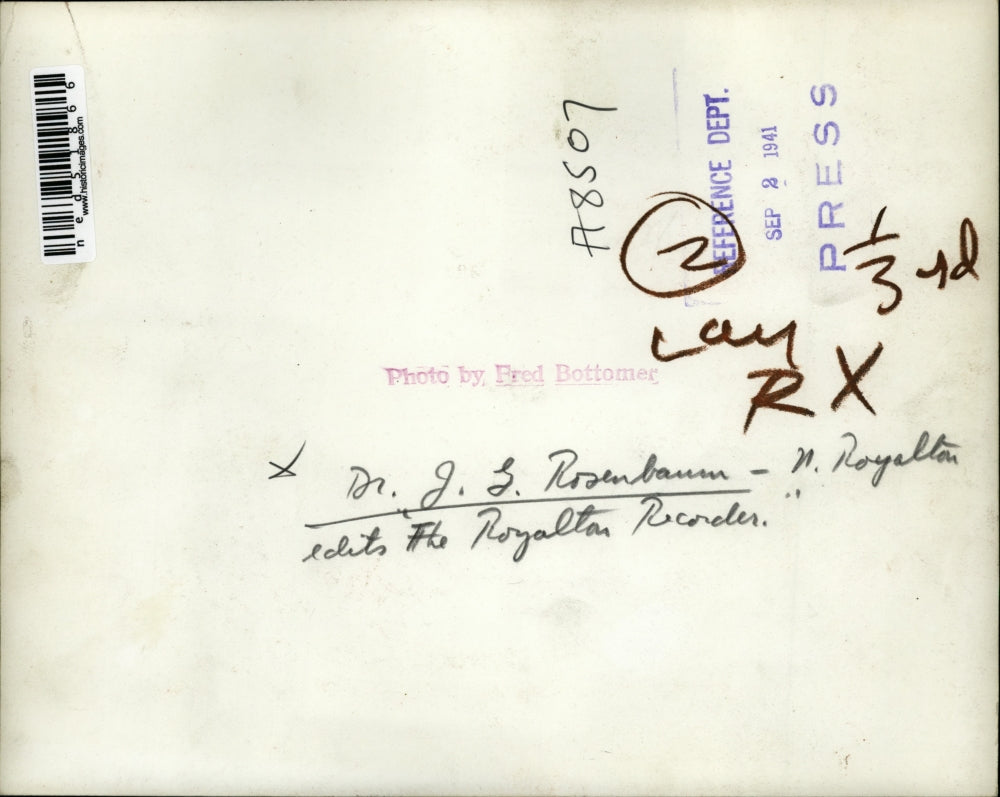 ned51866
www.historicimages.com
A8507
REFERENCE DEPT.
SEP 2 1941
PRESS
2
1/3 rd
Lay
RX
Photo by Fred Bottomer
X Dr. J. G. Rosenbaum – N. Royalton
edits "The Royalton Recorder."